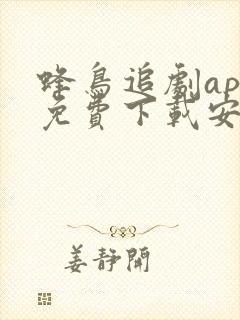 蜂鳥追劇ap
免費下載安
姜靜開